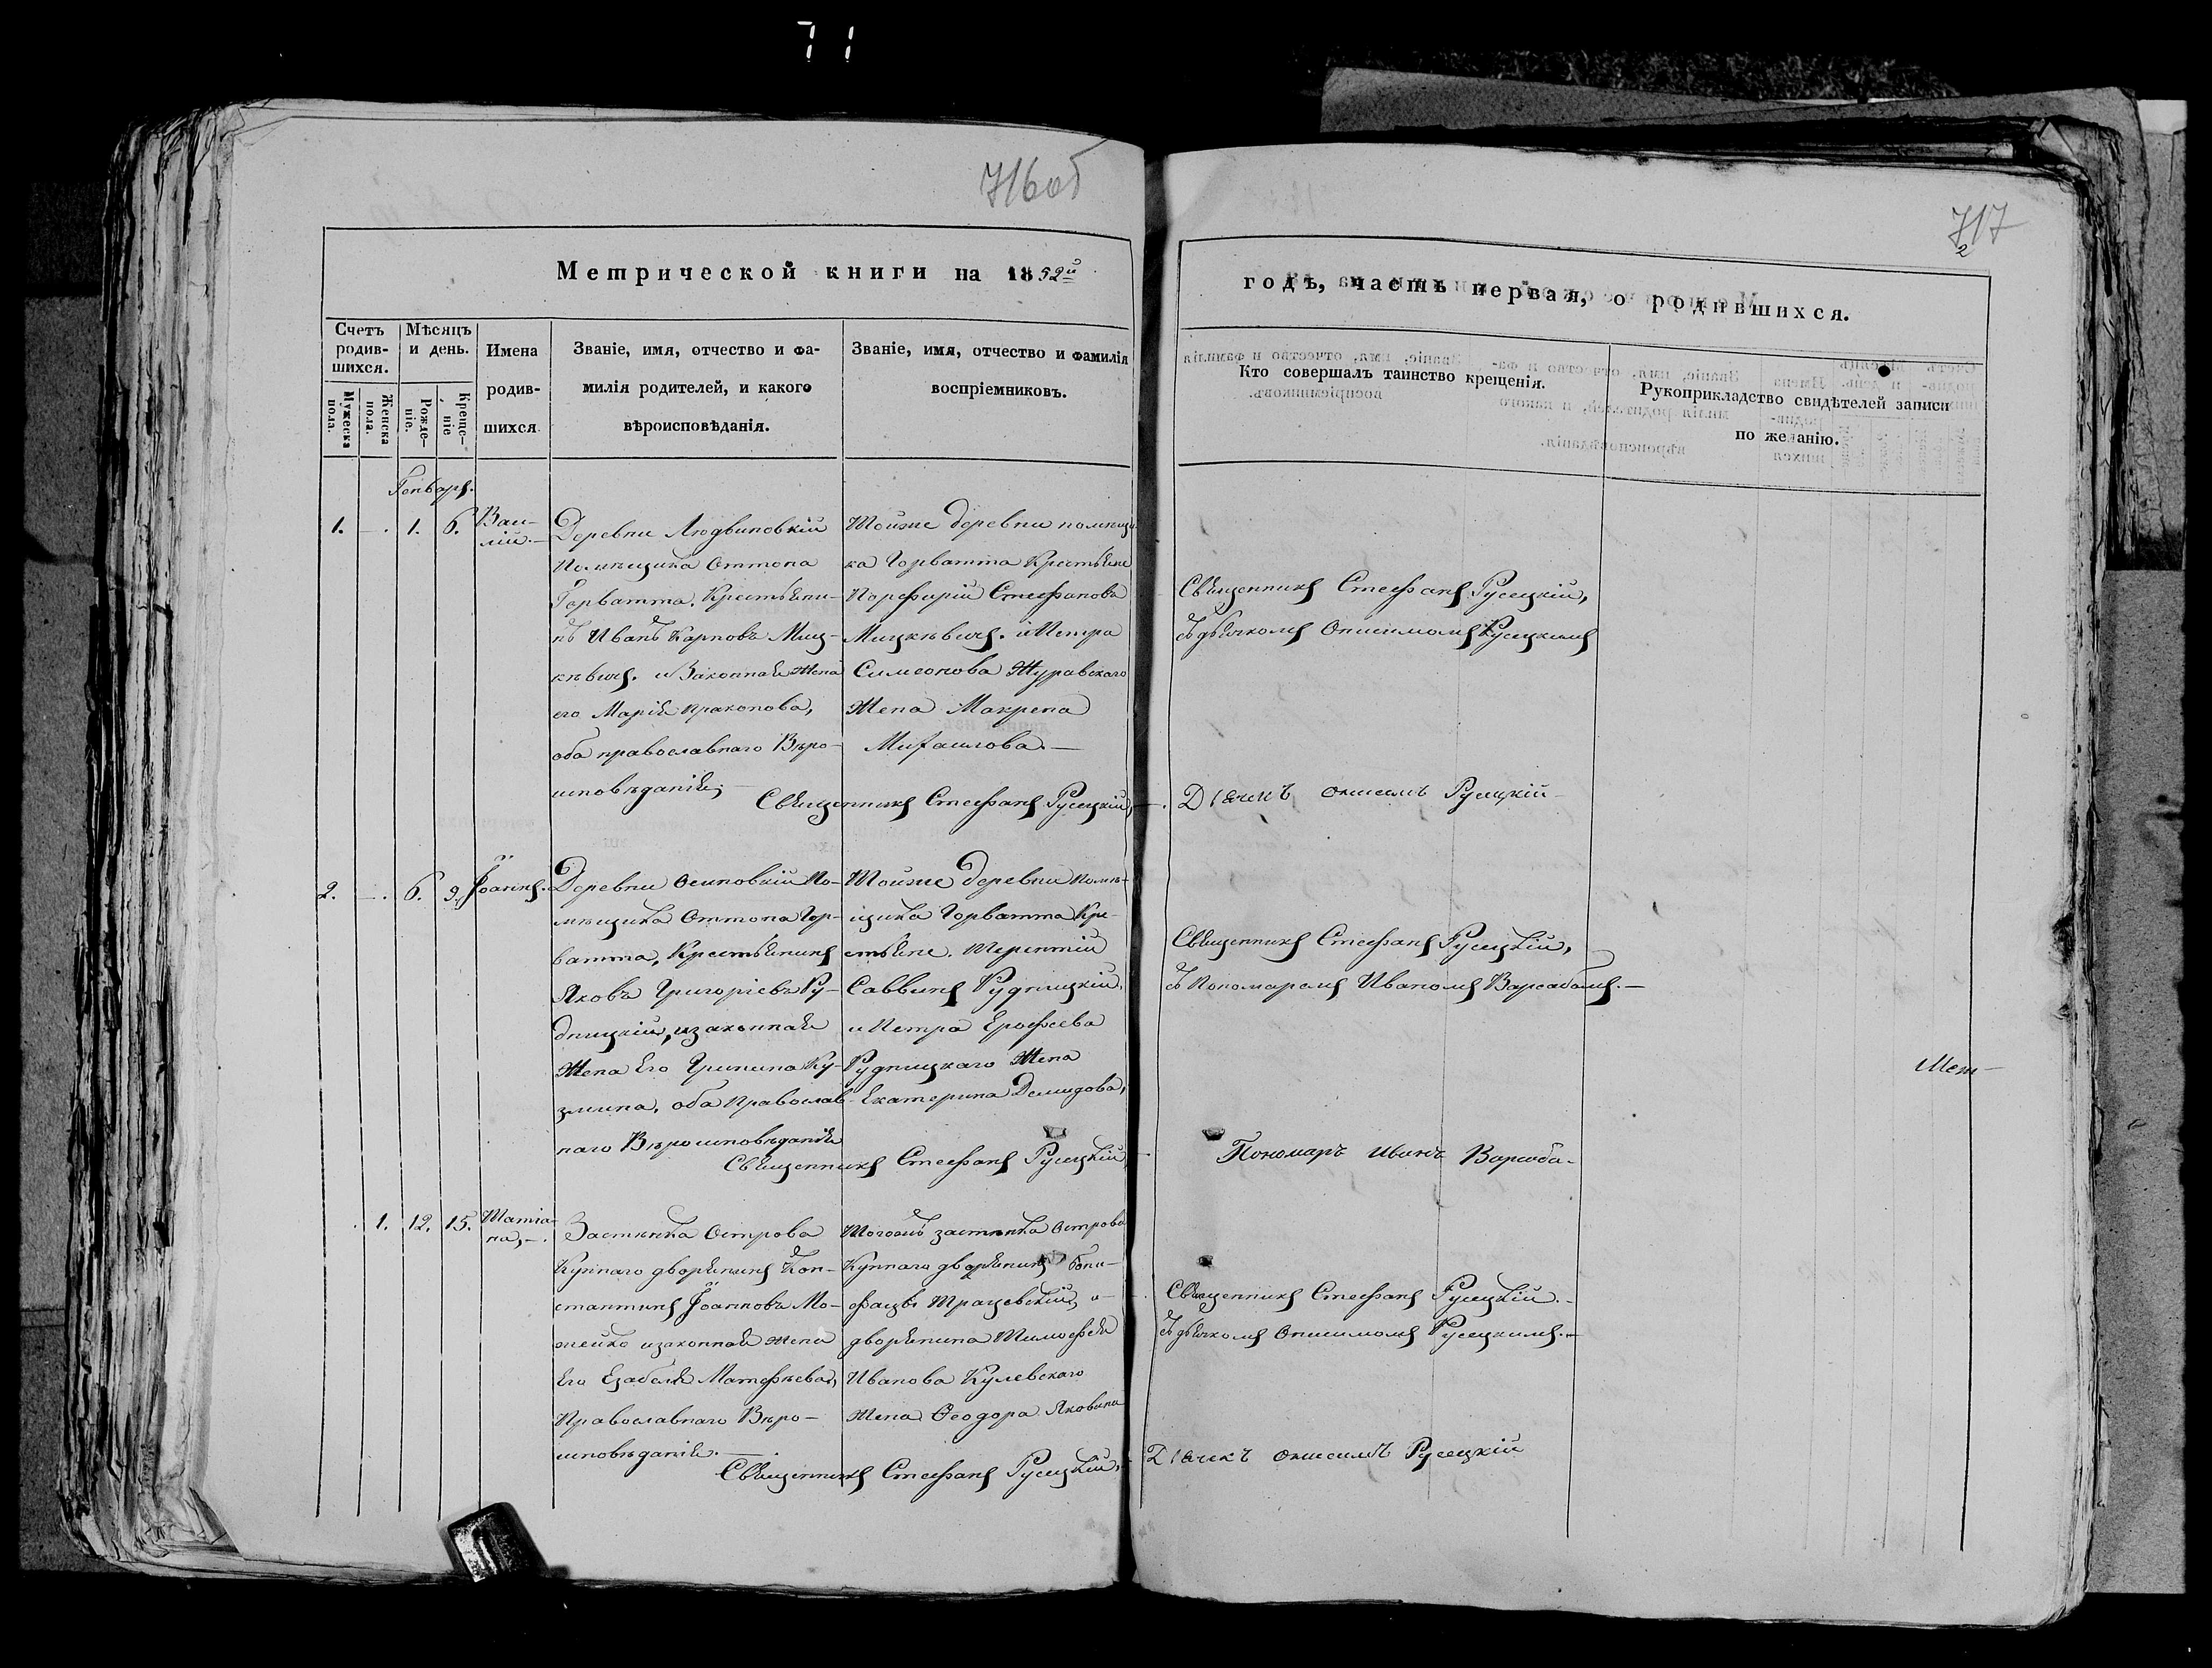 71
716об
717
2
Метрической книги на 1852й
годъ, часть первая, о родившихся.
Счетъ родив-шихся.
Мужеска пола.
Женска пола.
Мѣсяцъ и день.
Рожде-ніе.
Креще-ніе
Имена
родив-
шихся
Званіе, имя, отчество и фа-
милія родителей, и какого
вѣроисповѣданія.
Званіе, имя, отчество и фамилія
воспріемниковъ.
Кто совершалъ таинство крещенія.
Рукоприкладство свидѣтелей записи
по желанію.
Генваря.
1. — 1. 6.
Васи-
лій.—
Деревни Людвиновкій
Помѣщика Оттона
Горватта, Крестьяни-
нъ Иванъ Карповъ Миц-
кѣвичъ. и Законная Жена
его Марія Пракопова,
оба православнаго Вѣро-
исповѣданія;
Тойже деревни помѣщи-
ка Горватта Крестьяне
Порфирій Стефановъ
Мицкѣвичъ. и Петра
Симеонова Журавскаго
Жена Макрена
Михаилова.—
Священникъ Стефанъ Русецкій,
Священникъ Стефанъ Русецкій,
съ дьячкомъ Онисимомъ Русецкимъ
Дьячекъ Онисимъ Русецкій
2. — 6. 9.
Іоаннъ.
Деревни Осиповкій По-
мѣщика Оттона Гор-
ватта, Крестьянинъ
Яковъ Григоріевъ Ру-
дницкій, и законная
Жена Его Грипина Ку-
змина, оба Православ-
наго Вѣроисповѣданія
Тойже Деревни Помѣ-
щика Горватта Кре-
стьяне. Терентій
Саввинъ Рудницкій,
и Петра Ерофеева
Рудницкаго Жена
Екатерина Демидова,
Священникъ Стефанъ Русецкій
Священникъ Стефанъ Русецкій,
съ Пономаремъ Иваномъ Варсабомъ.—
Мет-
Пономаръ Иванъ Варсоба-
1. 12. 15.
Татіа-
на,—.
Застѣнка Острова
Купнаго дворянинъ Кон-
стантинъ Іоанновъ Мо-
жейко и законная жена
Его Езабеля Матфѣева,
Православнаго Вѣро-
исповѣданія.—
Тогожъ застѣнка Острова
Купнаго дворянинъ Бони-
фацы Трацевскій, и
дворянина Тимофея
Иванова Кулевскаго
Жена Феодора Яковина
Священникъ Стефанъ Русецкій,
Священникъ Стефанъ Русецкій.—
съ дьячкомъ Онисимомъ Русецкимъ.—
Дьячекъ Онисимъ Русецкій